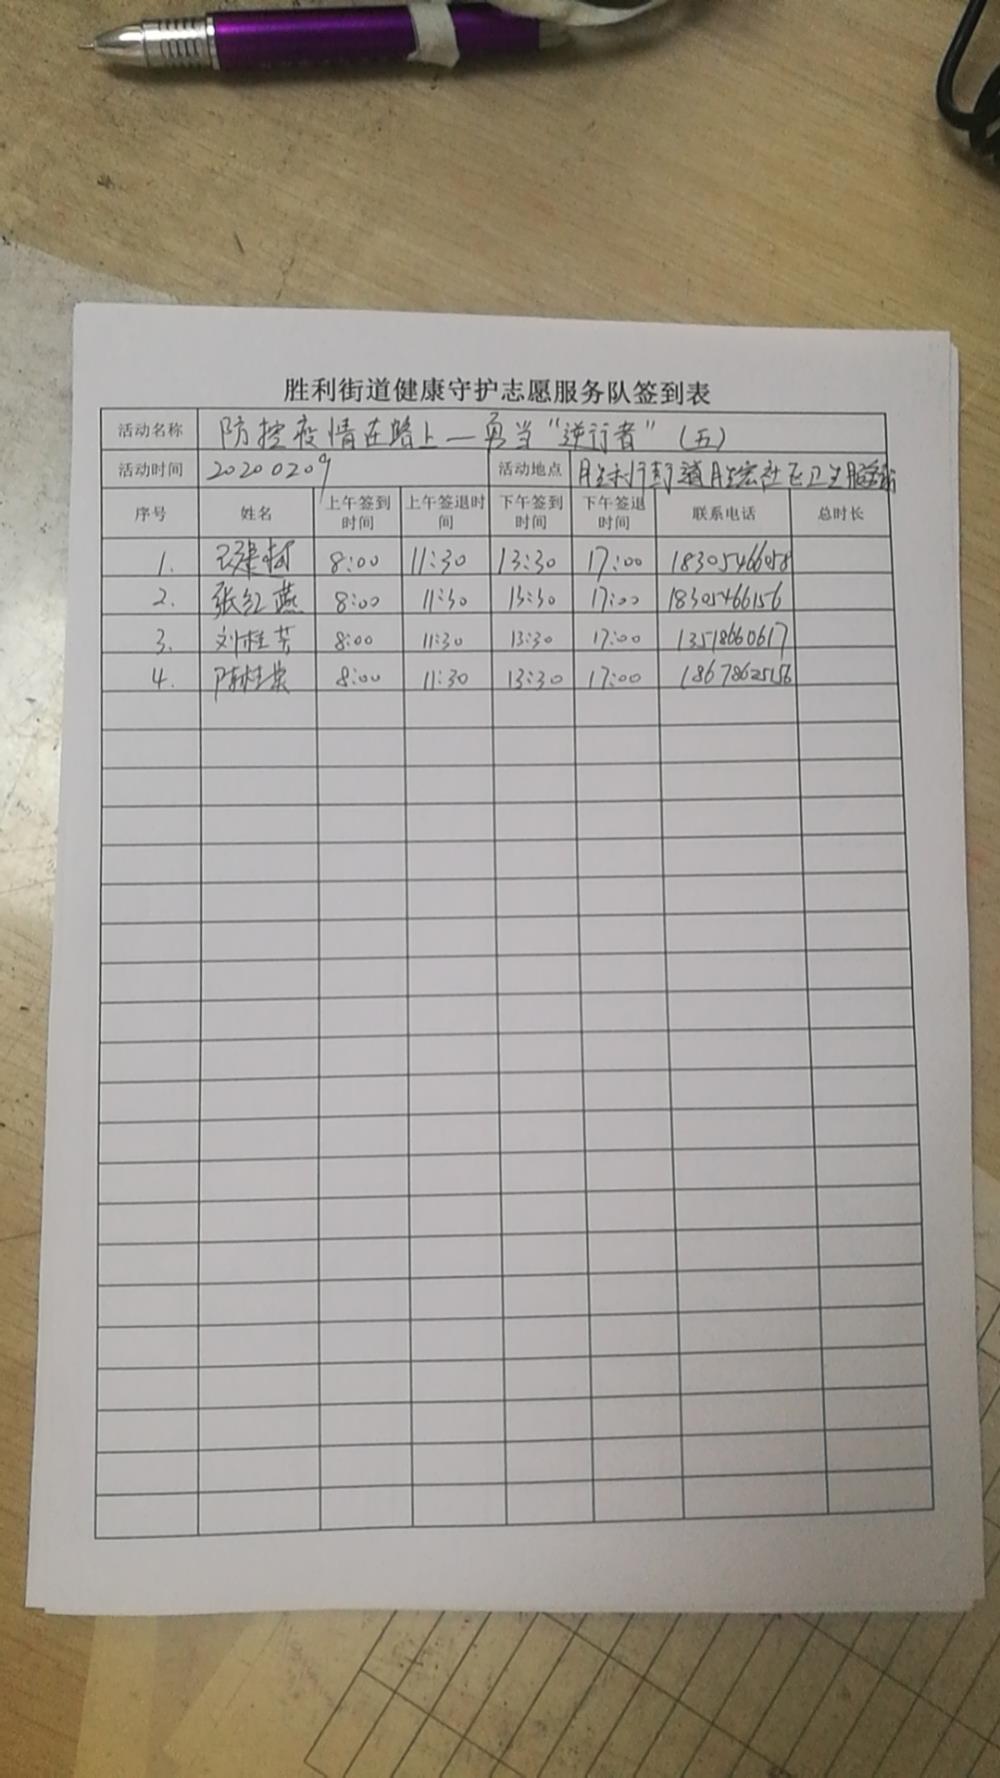 胜利街道健康守护志愿服务队签到表
活动名称 防控疫情在路上—勇当“逆行者”(五)
活动时间 20200209 活动地点 胜利街道胜宏社区卫生服务站
序号 姓名 上午签到时间 上午签退时间 下午签到时间 下午签退时间 联系电话 总时长
1. 8:00 11:30 13:30 17:00 18305466058
2. 张红燕 8:00 11:30 13:30 17:00 18305466156
3. 刘桂芳 8:00 11:30 13:30 17:00 13518660617
4. 8:00 11:30 13:30 17:00 18678625156